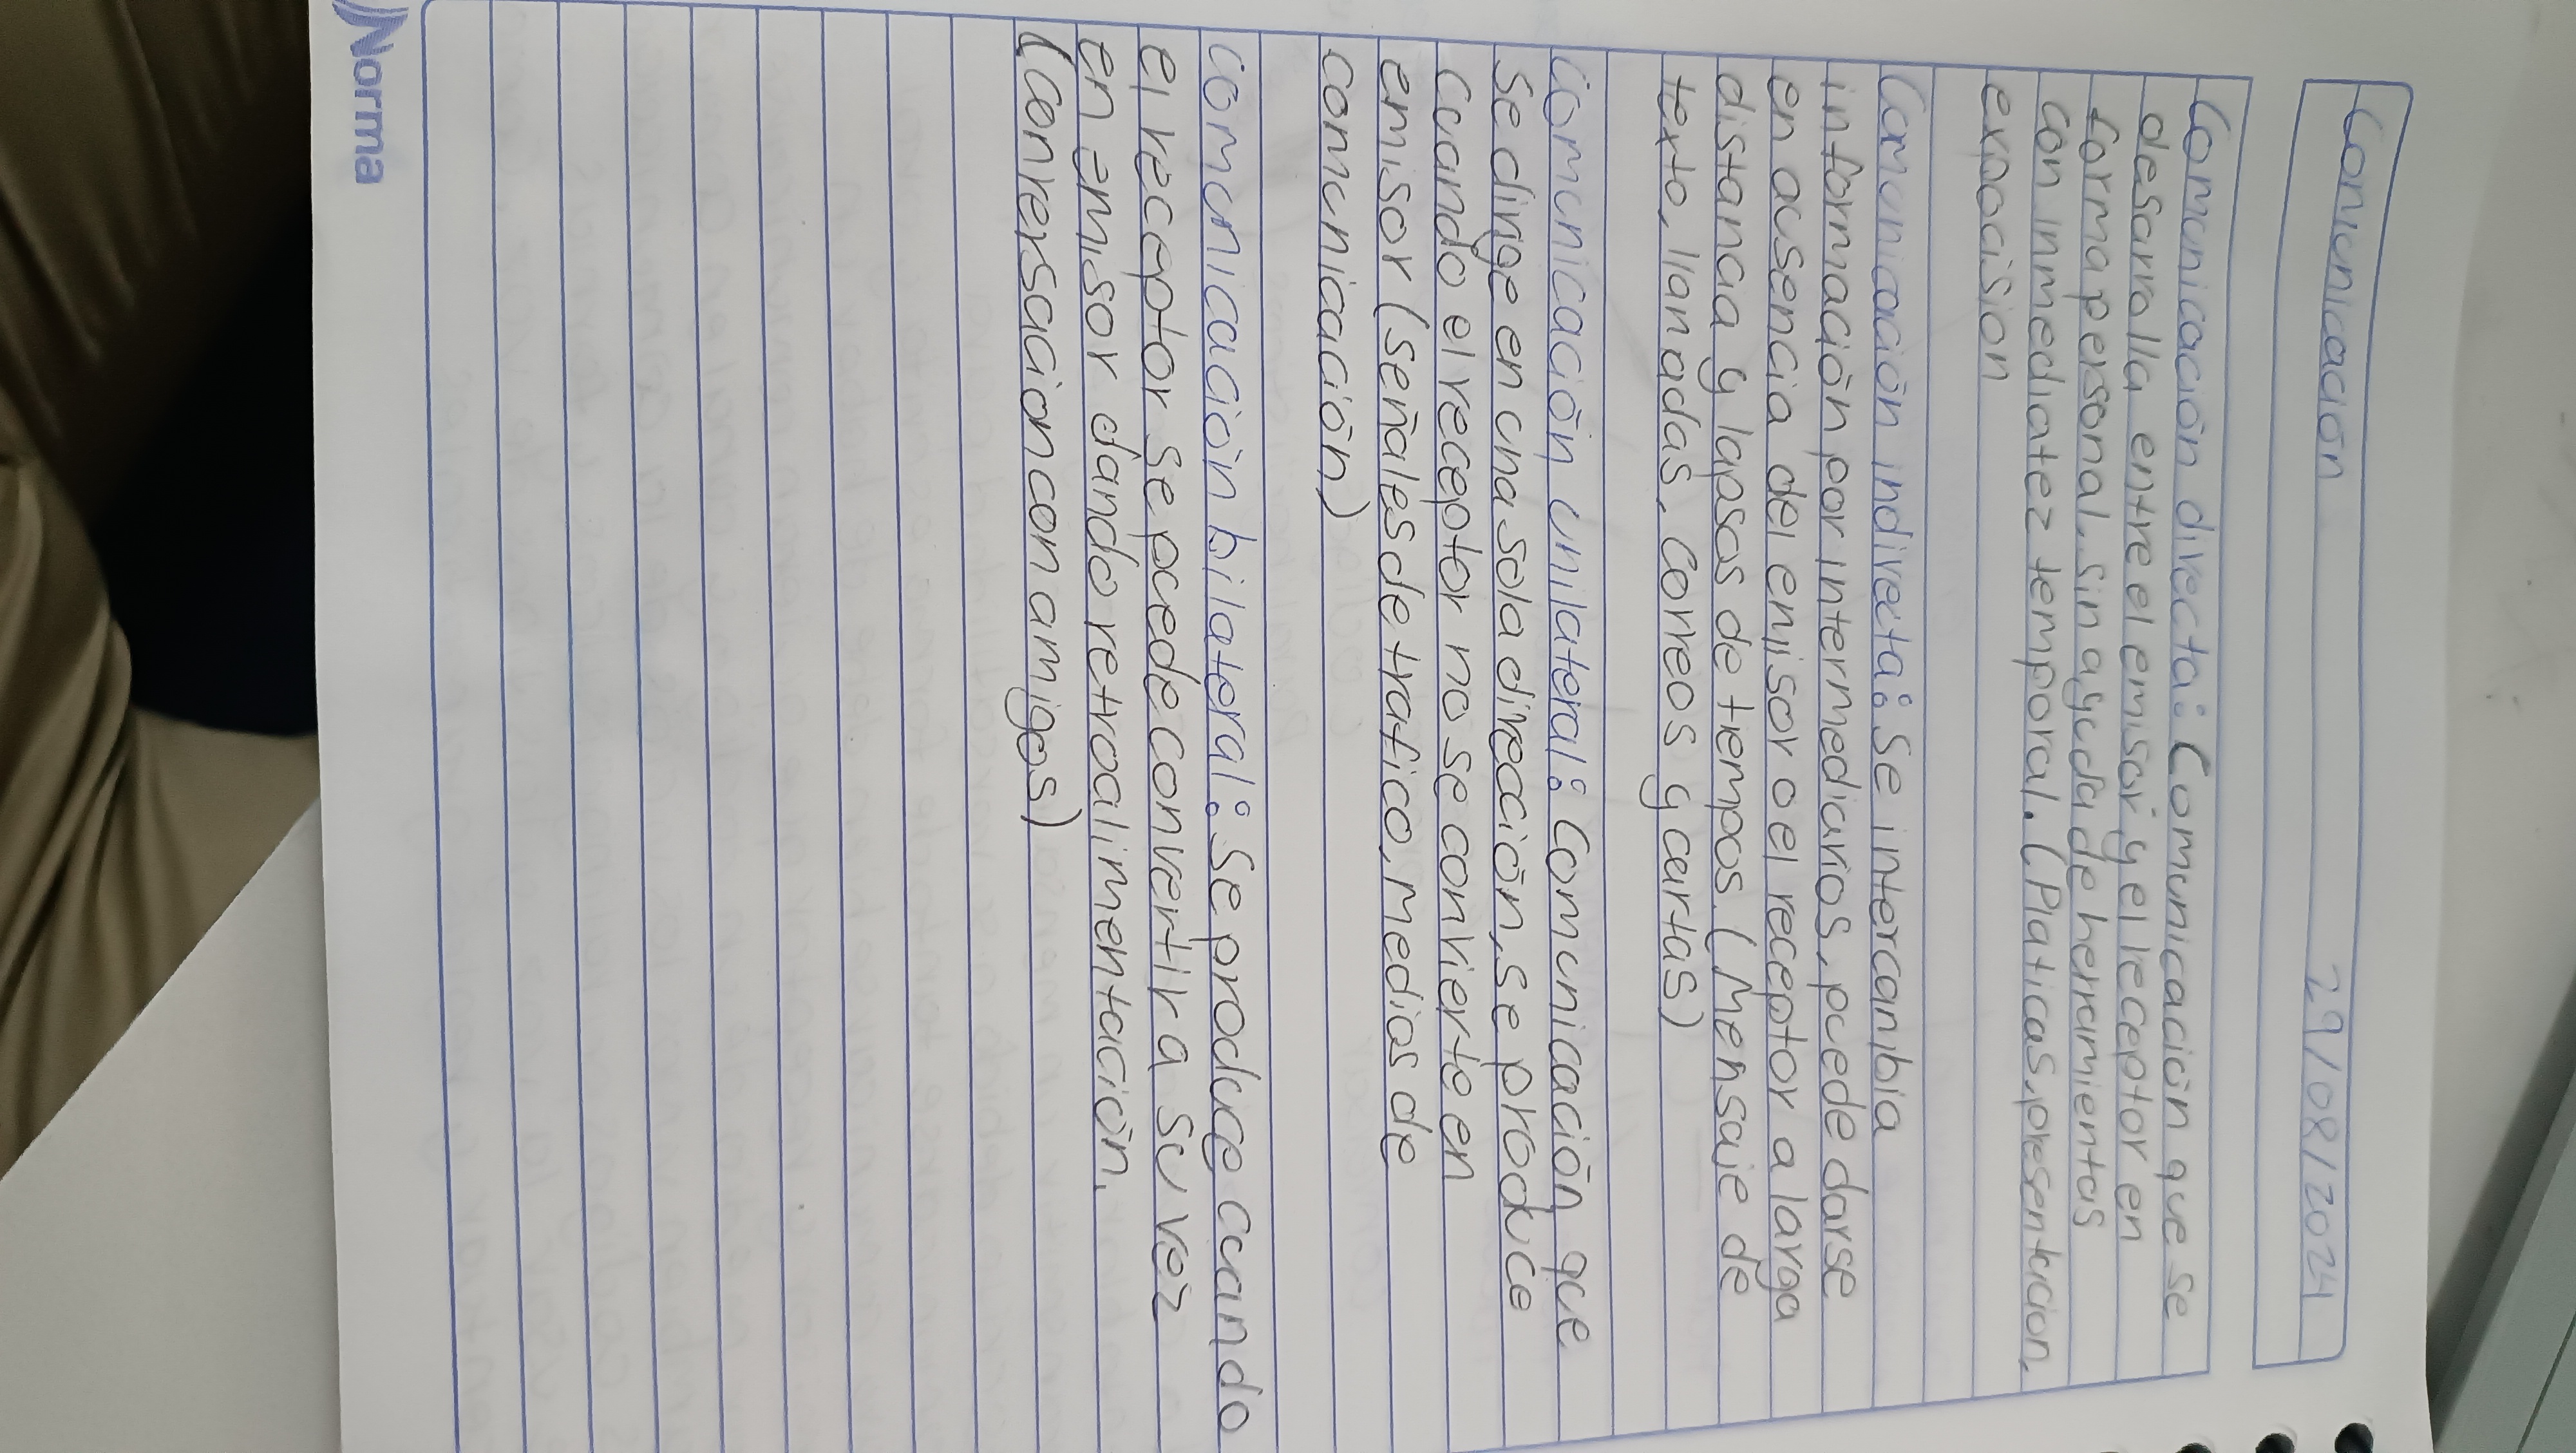 Comunicación 29/08/2024
Comunicación directa: Comunicación que se
desarrolla entre el emisor y el receptor en
forma personal, sin ayuda de herramientas
con inmediatez temporal. (Platicas, presentacion,
expocision
Comunicación indirecta: Se intercambia
información por intermediarios, puede darse
en ausencia del emisor o el receptor a larga
distancia y lapsos de tiempos. (Mensaje de
texto, llamadas, Correos y cartas)
Comunicación Unilateral: Comunicación que
se dirige en una sola dirección, se produce
Cuando el receptor no se convierte en
emisor (señales de trafico, medios de
comunicación)
Comunicación bilateral: Se produce cuando
el receptor se puede convertir a su vez
en emisor dando retroalimentación.
(Conversacion con amigos)
Norma